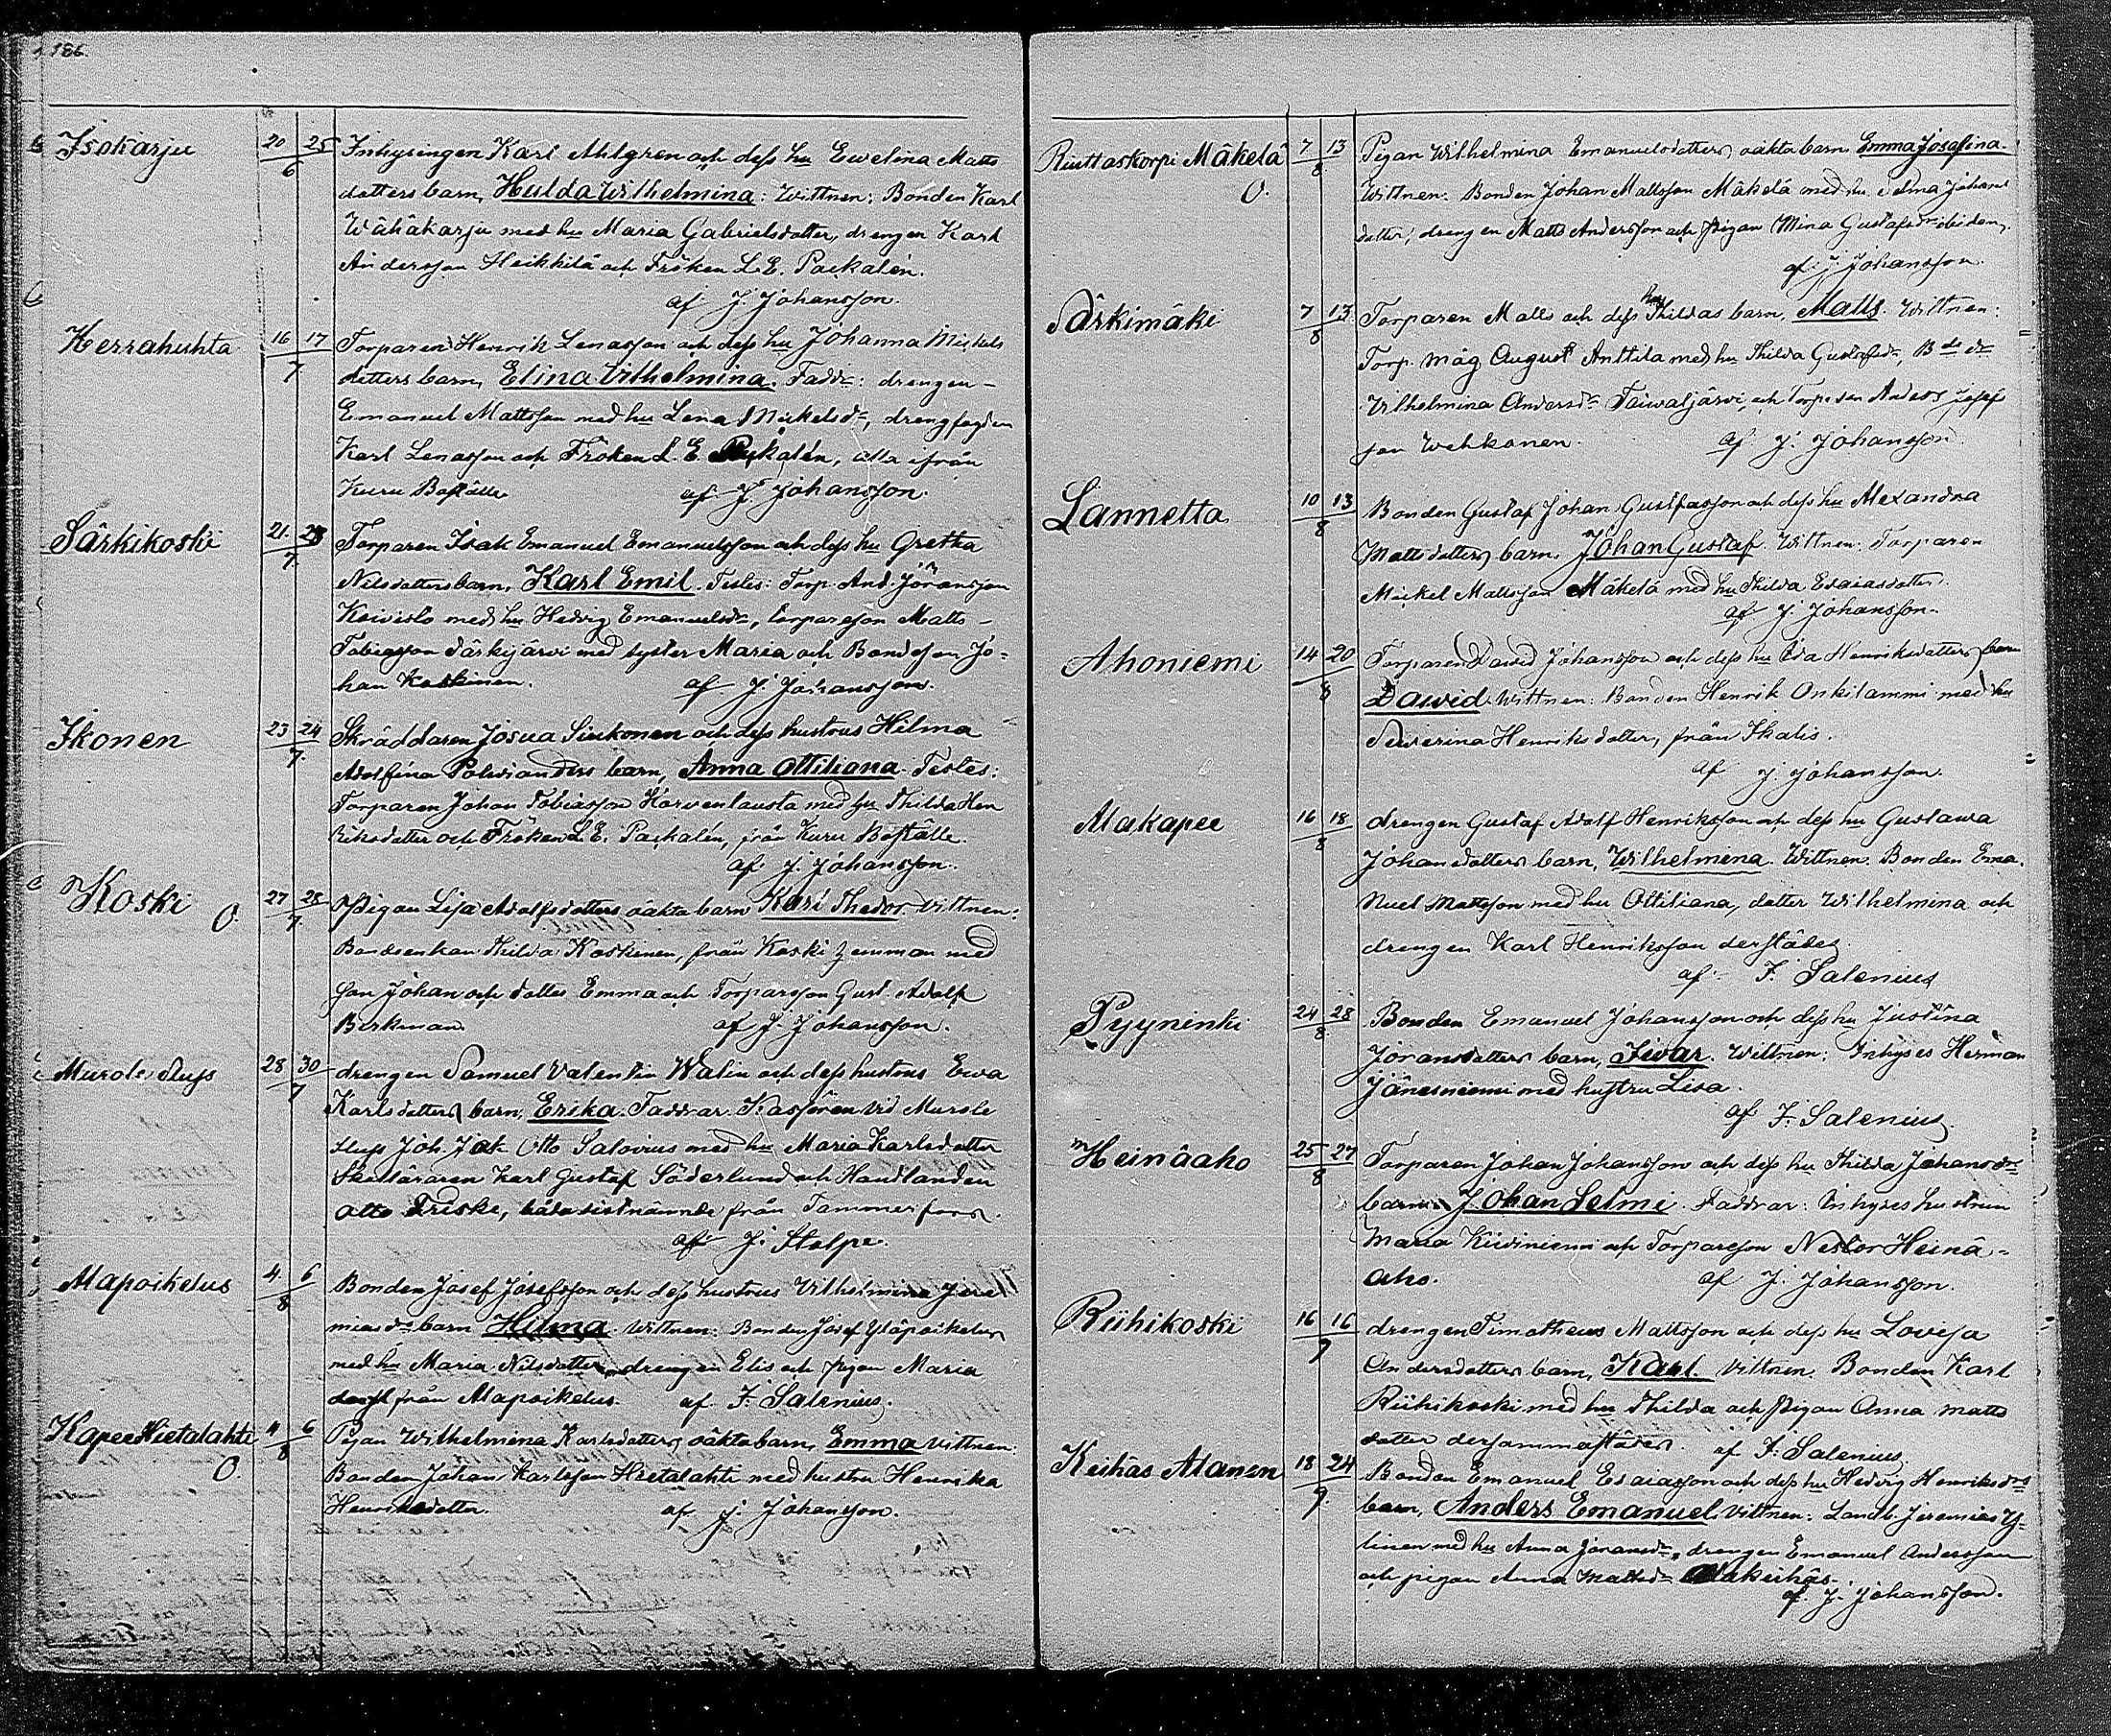 186.
Isokarju 20 25 Inhysingen Karl Ahlgren och dess hu Ewelina Matts
6
dotters barn, Hulda Wilhelmina: Wittnen: Bonden Karl
Wähäkarju med hu Maria Gabrielsdotter, drengen Karl
Andersson Heikkilä och Fröken L. E. Packalén.
af J. Johansson.
Herrahuhta 16 17 Torparen Henrik Lenasson och dess hu Johanna Mickels
7
dotters barn, Elina Vilhelmina. Fadd: drengen
Emanuel Mattsson med hu Lena Mickelsdr, drengfogden
Karl Lenasson och Fröken L. E. Packalén, alla ifrån
Kuru Boställe af J. Johansson.
Särkikoski 21. 23 Torparen Isak Emanuel Emanuelsson och dess hu Gretha
7.
Nilsdotters barn, Karl Emil. Testes: Torp. And. Jöransson
Koivisto med hu Hedvig Emanuelsdr, torpareson Matts
Tobiasson Särkijärvi med syster Maria och Bondeson Jo-
han Koskinen. af J. Johansson.
Ikonen 23 24 Skräddaren Josua Siukonen och dess hustrus Hilma
7.
Adolfina Polvianders barn, Anna Ottiliana. Testes:
Torparen Johan Tobiasson Korventausta med hu Thilda Hen
riksdotter och Fröken L. E. Packalén, från Kuru Boställe.
af J. Johansson.
Koski O. 27 28 Pigan Lisa Adolfsdotters oäkta barn Karl Thedor. Vittnen:
7.
Bondeenkan Thilda Koskinen, från Koski hemman med
son Johan och dotter Emma och Torparson Gust. Adolf
Birkman af J. Johansson.
Murole Sluss 28 30 drengen Samuel Valentin Walin och dess hustrus Ewa
7
Karlsdotters barn, Erika. Faddrar. Kassören vid Murole
Sluss Joh. Jak. Otto Salovius med hu Maria Karlsdotter
Karl Gustaf Söderlund och Handlanden
Otto Friske, båda sistnämnde från Tammerfors.
af J. Stolpe.
Alapoikelus 4. 6 Bonden Josef Josefsson och dess hustrus Vilhelmina Jere
8
miasdr barn Hilma. Wittnen: Bonden Josef Yläpoikelus
med hu Maria Nilsdotter, drengen Elis och pigan Maria
från Alapoikelus. af F. Salenius.
Kapee Hietalahti O. 4 6 Pigan Wilhelmina Karlsdotters oäkta barn, Emma vittnen:
8
Bonden Johan Karlsson Hietalahti med hustru Henrika
Henriksdotter. af J. Johansson.
Riuttaskorpi Mäkelä O. 7 13 Pigan Wilhelmina Emanuelsdotters oäkta barn Emma Josefina.
8
Wittnen. Bonden Johan Mattsson Mäkelä med hu Johans
dotter, drengen Matts Andersson och Pigan Mina Gustafsdr ibidem.
af J. Johansson.
Särkimäki 7 13 Torparen Matts och dess hu Thildas barn, Matts. Wittnen:
8
Torp. måg August Anttila med hu Thilda Gustafsdr, Bde dr
Vilhelmina Andersdr Taivaljärvi, och Torparen Anders Josefs
son Wehkonen. af J. Johansson.
Lannetta 10 13 Bonden Gustaf Johan Gustfasson och dess hu Alexandra
8
Mattsdotters barn, Johan Gustaf. Wittnen: Torparen
Mickel Mattsson Mäkelä med hu Thilda Esaiasdotter.
af J. Johansson.
Ahoniemi 14 20 Torparen David Johansson och dess hu Eva Henriksdotters barn
8
Dawid. Wittnen: Bonden Henrik Onkilammi med hu
Sewerina Henriksdotter, från Ikalis.
af J. Johansson.
Alakapee 16 18 drengen Gustaf Adolf Henriksson och dess hu Gustawa
8
Johansdotters barn, Wilhelmina. Wittnen. Bonden Ema-
nuel Mattsson med hu Ottiliana, dotter Wilhelmina och
drengen Karl Henriksson derstädes.
af F. Salenius
Pyyninki 24 28 Bonden Emanuel Johansson och dess hu Justina
8
Göransdotters barn, Iivar. Wittnen: Inhyses Herman
Jänesniemi med hustru Lisa.
af F. Salenius
Heinäaho 25 27 Torparen Johan Johansson och dess hu Thilda Johansdrs
8
barn, Johan Selmi. Faddrar: Inhyses hustrun
Maria Kiviniemi och Torpareson Nestor Heinä-
aho. af J. Johansson.
Riihikoski 16 16 drengen Timotheus Mattsson och dess hu Lovisa
9
Andersdotters barn, Karl. Vittnen. Bonden Karl
Riihikoski med hu Thilda och Pigan Anna Matts
dotter dersammastädes. af F. Salenius
Keihäs Alanen 18 24 Bonden Emanuel Esaiasson och dess hu Hedvig Henriksdrs
9.
barn, Anders Emanuel. Vittnen: Landb. Jeremias Y-
linen med hu Anna Göransdr, drengen Emanuel Andersson
och pigan Anna Mattsdr Alakeihäs.
af J. Johansson.